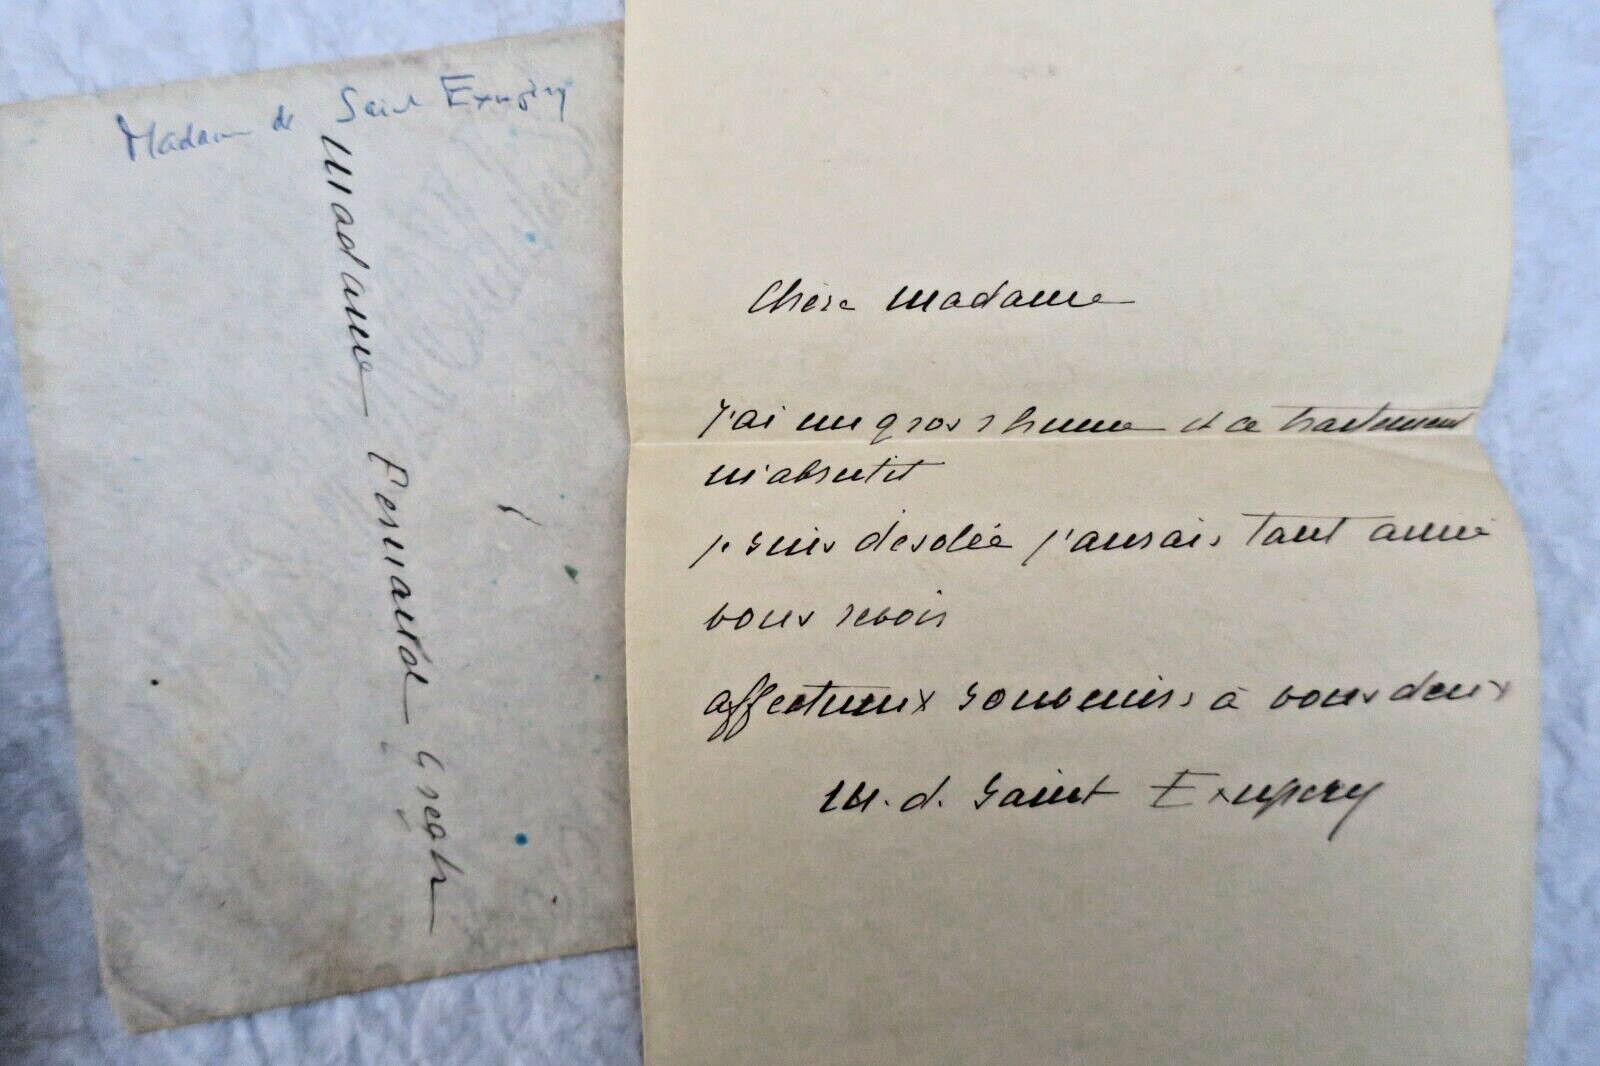 Madame de Saint Exupéry
Madame Fernand Gregh
Chère Madame
J'ai un gros rhume et ce traitement
m'abrutit
je suis désolée j'aurais tant aimé
vous revoir
affectueux souvenirs à vous deux
M. d. Saint Exupéry